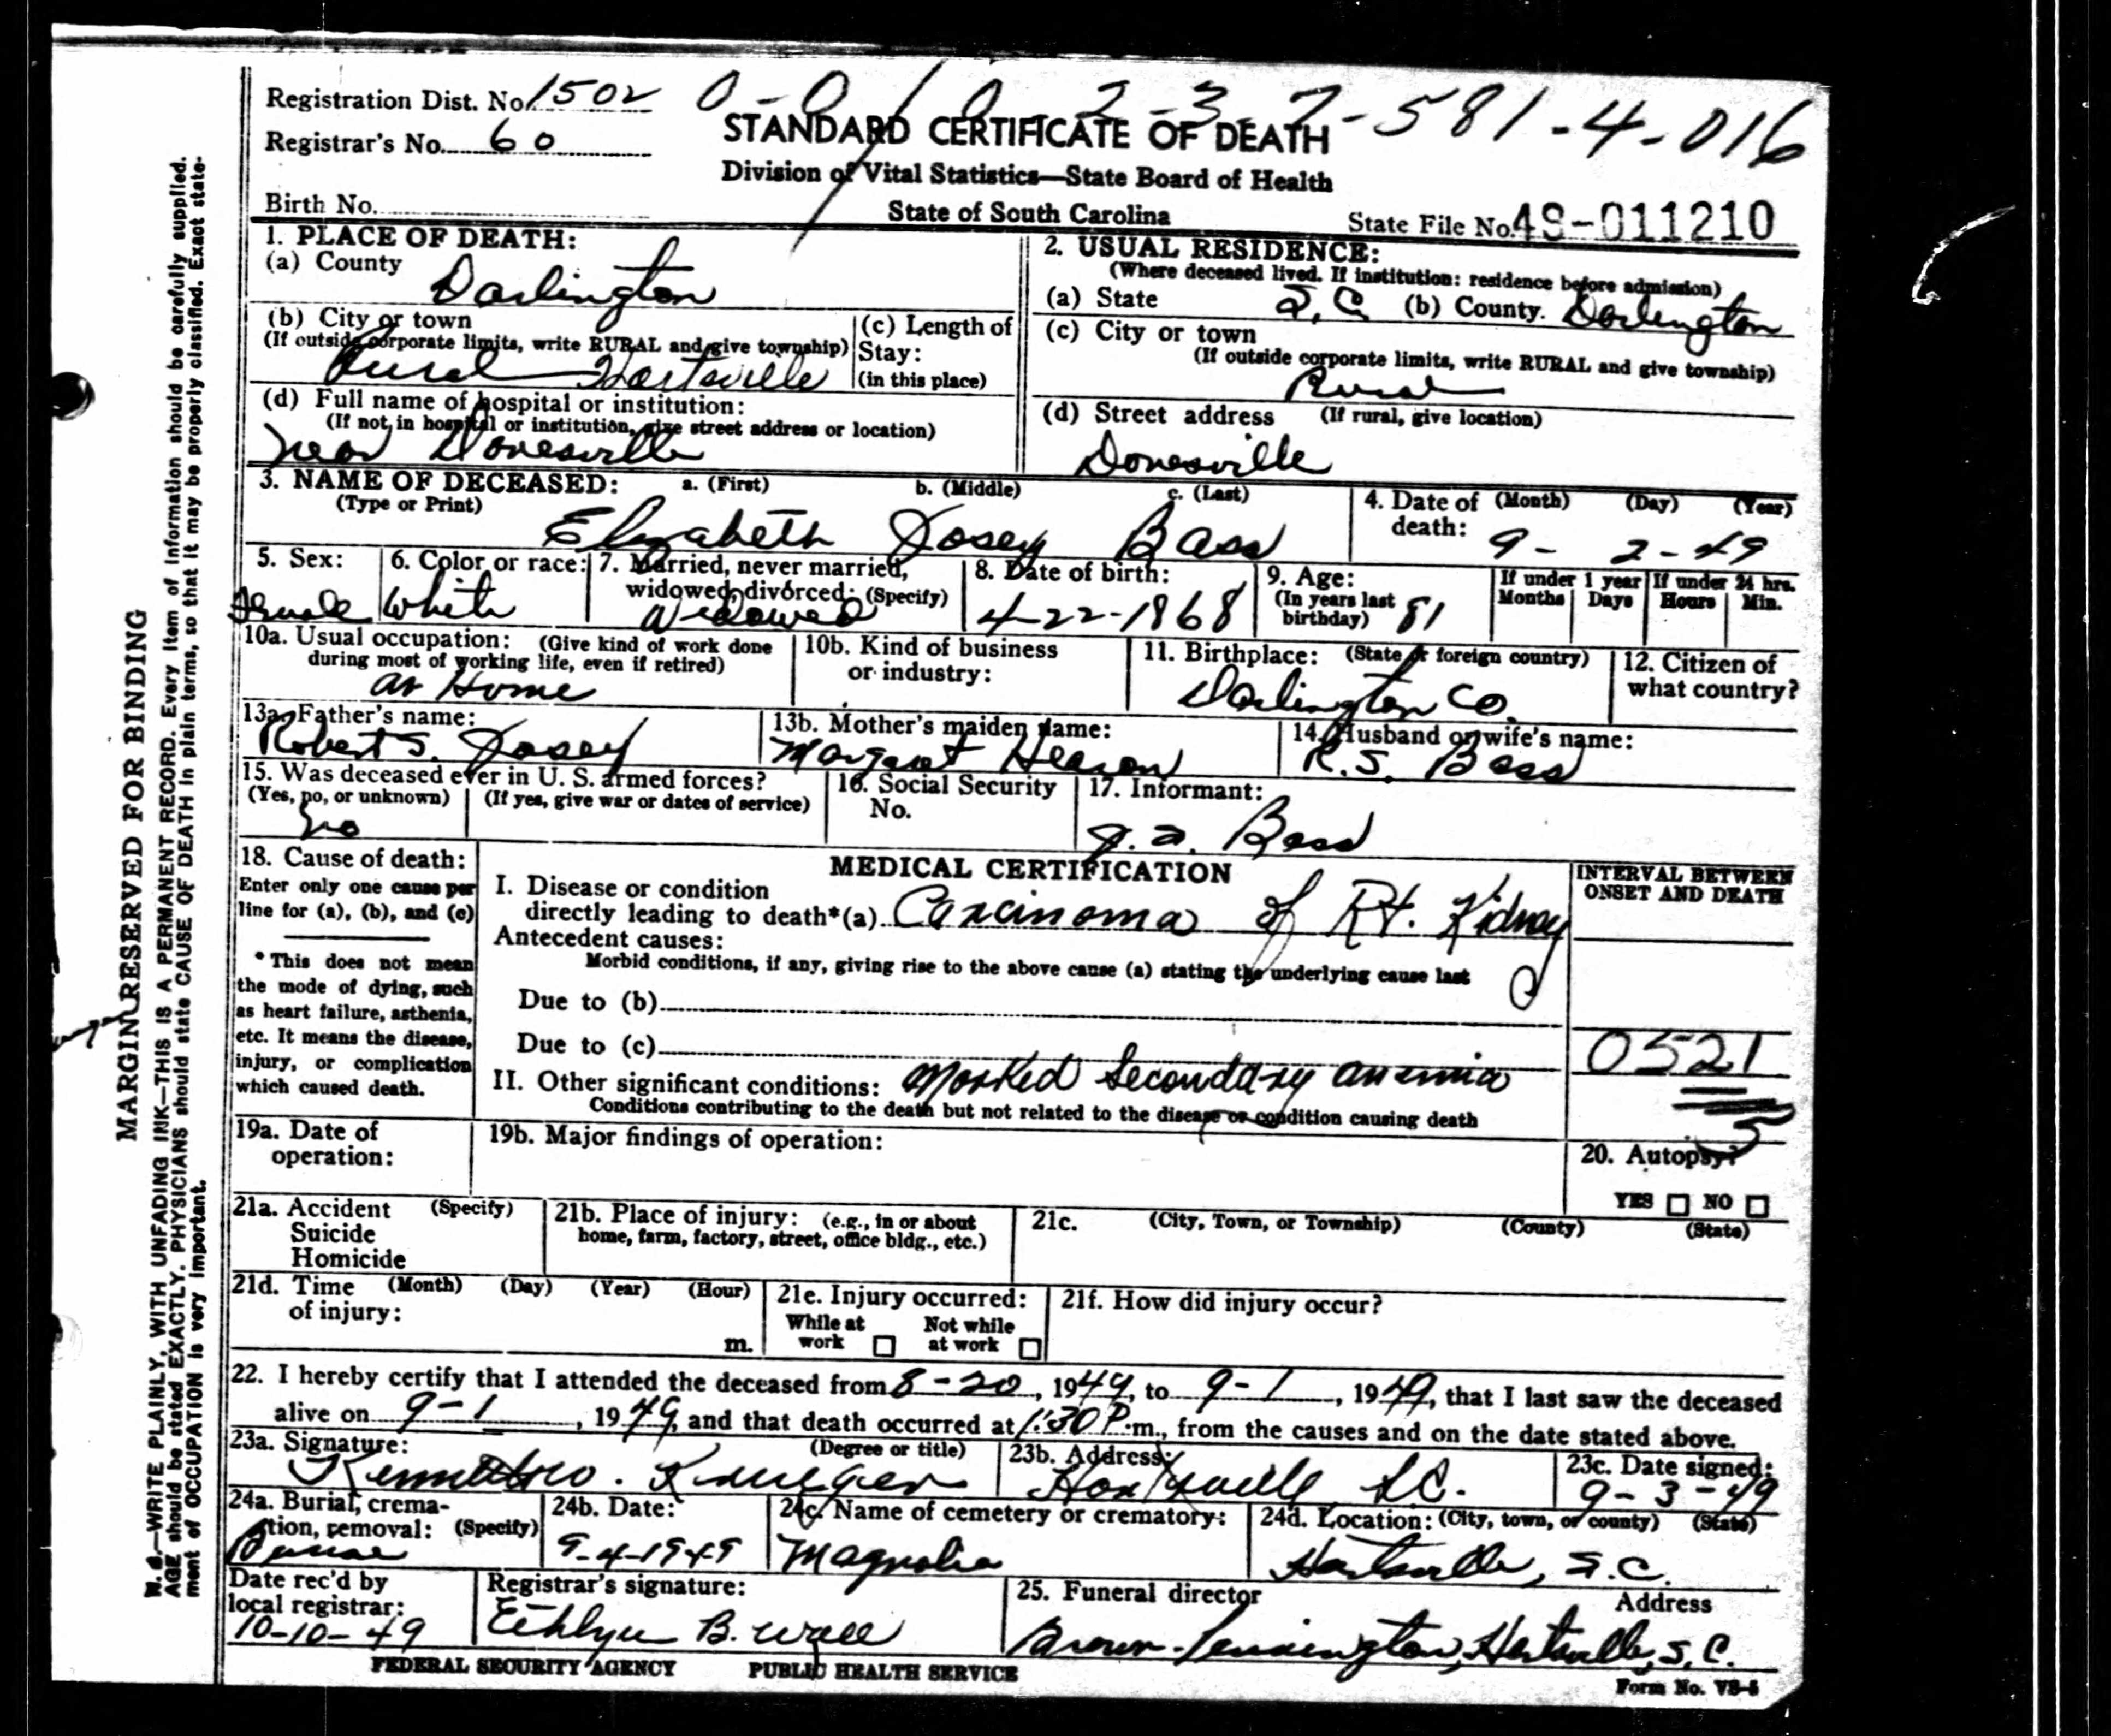 Registration Dist. No. 1502 0-0 1 0 2-3-7-581-4-016
Registrar's No. 60
STANDARD CERTIFICATE OF DEATH
Division of Vital Statistics—State Board of Health
Birth No.
State of South Carolina
State File No. 49-011210
1. PLACE OF DEATH:
(a) County Darlington
(b) City or town
(If outside corporate limits, write RURAL and give township)
Rural Hartsville
(c) Length of
Stay:
(in this place)
(d) Full name of hospital or institution:
(If not in hospital or institution, give street address or location)
near Dovesville
2. USUAL RESIDENCE:
(Where deceased lived. If institution: residence before admission)
(a) State S.C. (b) County. Darlington
(c) City or town
(If outside corporate limits, write RURAL and give township)
Rural
(d) Street address (If rural, give location)
Dovesville
3. NAME OF DECEASED: a. (First) b. (Middle) c. (Last)
(Type or Print)
Elizabeth Josey Bass
4. Date of (Month) (Day) (Year)
death: 9- 2-49
5. Sex:
Female
6. Color or race:
White
7. Married, never married,
widowed, divorced: (Specify)
Widowed
8. Date of birth:
4-22-1868
9. Age:
(In years last
birthday) 81
If under 1 year
Months Days
If under 24 hrs.
Hours Min.
10a. Usual occupation: (Give kind of work done
during most of working life, even if retired)
at Home
10b. Kind of business
or industry:
11. Birthplace: (State or foreign country)
Darlington Co.
12. Citizen of
what country?
13a. Father's name:
Robert S. Josey
13b. Mother's maiden name:
Margaret Hearon
14. Husband or wife's name:
R.S. Bass
15. Was deceased ever in U. S. armed forces?
(Yes, no, or unknown) (If yes, give war or dates of service)
no
16. Social Security
No.
17. Informant:
Bass
18. Cause of death:
Enter only one cause per
line for (a), (b), and (c)
* This does not mean
the mode of dying, such
as heart failure, asthenia,
etc. It means the disease,
injury, or complication
which caused death.
MEDICAL CERTIFICATION
I. Disease or condition
directly leading to death*(a) Carcinoma of Rt. Kidney
Antecedent causes:
Morbid conditions, if any, giving rise to the above cause (a) stating the underlying cause last
Due to (b)
Due to (c)
II. Other significant conditions: Marked Secondary anemia
Conditions contributing to the death but not related to the disease or condition causing death
INTERVAL BETWEEN
ONSET AND DEATH
0521
5
19a. Date of
operation:
19b. Major findings of operation:
20. Autopsy?
YES NO
21a. Accident (Specify)
Suicide
Homicide
21b. Place of injury: (e.g., in or about
home, farm, factory, street, office bldg., etc.)
21c. (City, Town, or Township) (County) (State)
21d. Time (Month) (Day) (Year) (Hour)
of injury:
m.
21e. Injury occurred:
While at Not while
work at work
21f. How did injury occur?
22. I hereby certify that I attended the deceased from 8-20, 1949, to 9-1, 1949, that I last saw the deceased
alive on 9-1, 1949, and that death occurred at 1:30 P.m., from the causes and on the date stated above.
23a. Signature: (Degree or title)
Krueger
23b. Address:
Hartsville S.C.
23c. Date signed:
9-3-49
24a. Burial, crema-
tion, removal: (Specify)
Burial
24b. Date:
9-4-1949
24c. Name of cemetery or crematory:
Magnolia
24d. Location: (City, town, or county) (State)
Hartsville, S.C.
Date rec'd by
local registrar:
10-10-49
Registrar's signature:
Ethlyn B. Wall
25. Funeral director Address
Brown-Pennington, Hartsville, S.C.
FEDERAL SECURITY AGENCY PUBLIC HEALTH SERVICE
Form No. VS-5
MARGIN RESERVED FOR BINDING
N. B.—WRITE PLAINLY, WITH UNFADING INK—THIS IS A PERMANENT RECORD. Every item of information should be carefully supplied.
AGE should be stated EXACTLY. PHYSICIANS should state CAUSE OF DEATH in plain terms, so that it may be properly classified. Exact state-
ment of OCCUPATION is very important.